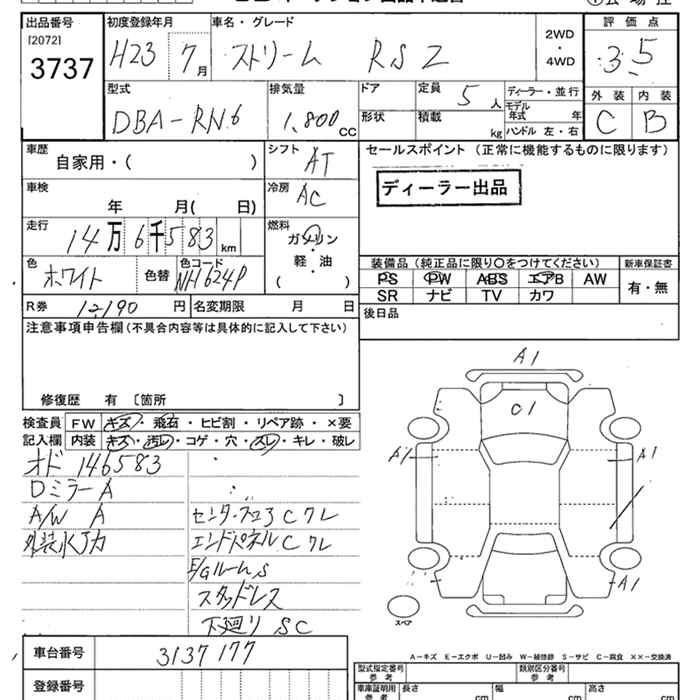 出品番号 初度登録年月 車名・グレード 2WD・4WD 評価点
[2072] 3737 H23 7月 ストリーム RSZ 3.5
型式 排気量 ドア 定員 5人 ディーラー・並行 外装 内装
DBA-RN6 1,800CC 形状 積載 kg モデル年式 年 C B
ハンドル 左・右
車歴 自家用・( ) シフト AT セールスポイント (正常に機能するものに限ります)
車検 年 月( 日) 冷房 AC ディーラー出品
走行 14万6千583km 燃料 ガソリン・軽・油 ( )
色 ホワイト 色替 色コード NH624P
装備品 (純正品に限り○をつけてください) 新車保証書
PS PW ABS エアB AW 有・無
SR ナビ TV カワ
R券 12,190円 名変期限 月 日 後日品
注意事項申告欄(不具合内容等は具体的に記入して下さい)
修復歴 有 [箇所 ]
検査員記入欄 FW キズ・飛石・ヒビ割・リペア跡・×要
内装 キズ・汚レ・コゲ・穴・スレ・キレ・破レ
オド 146583
Dミラー A
A/W A センタ・フロ C クレ
外装 エンドパネル C クレ
E/Gルーム S
スタッドレス
下廻り SC
A1
C1
A1 A1
A1
スペア
A-キズ E-エクボ U-凹み W-補修跡 S-サビ C-腐食 ××-交換済
車台番号 3137177
登録番号
型式指定番号 参考 類別区分番号 参考
車庫証明用 参考 長さ cm 幅 cm 高さ cm